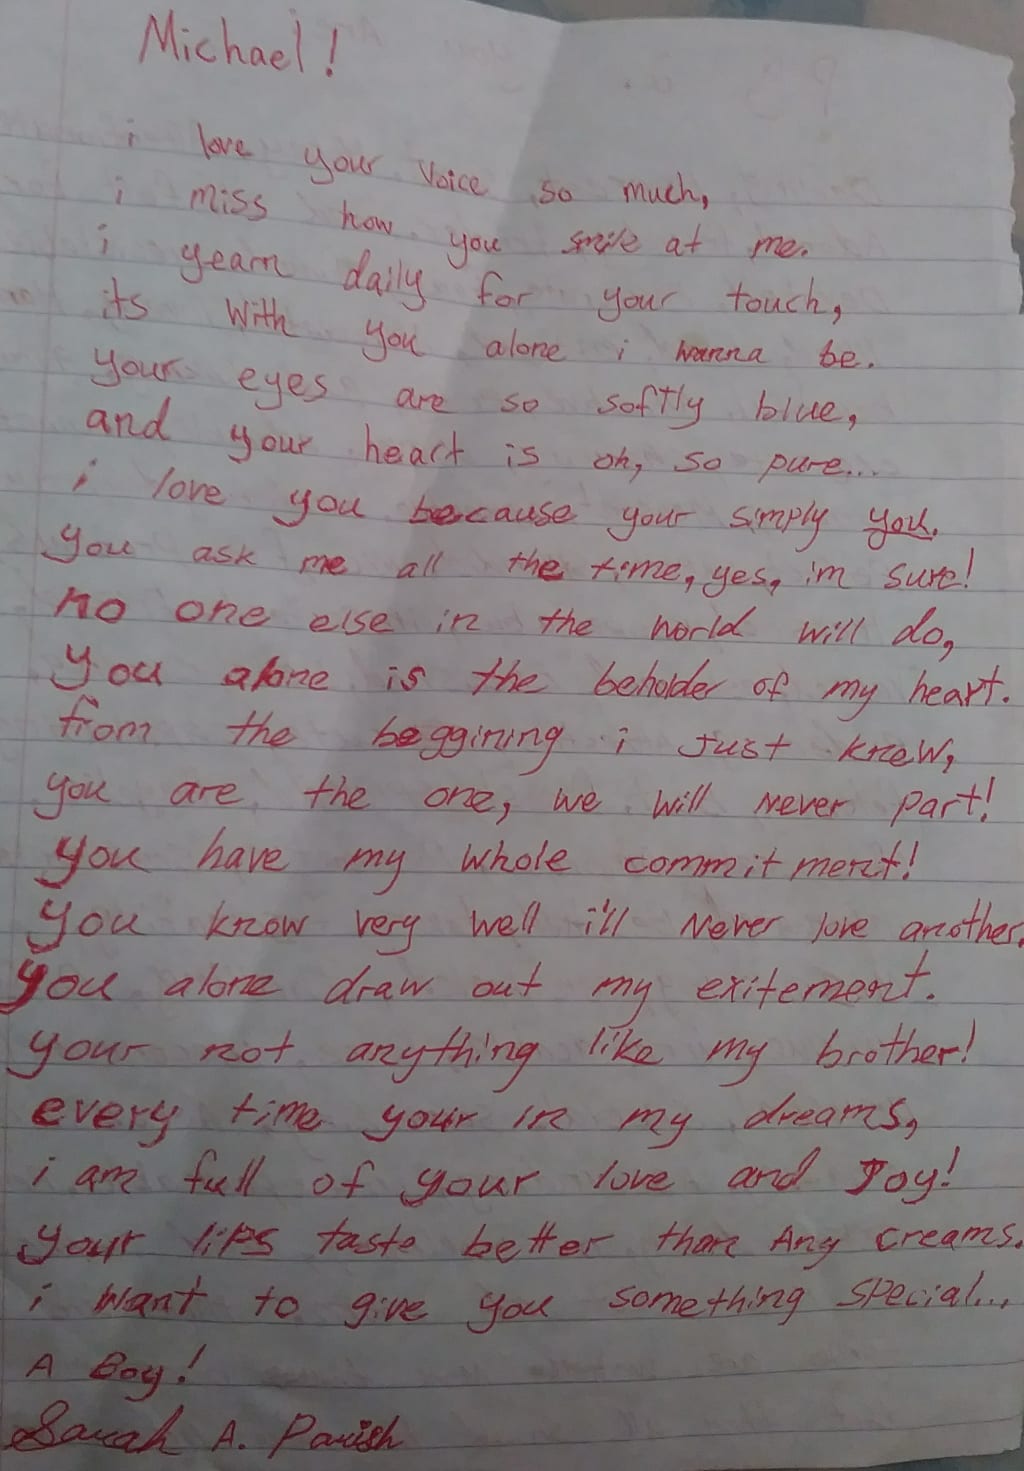 Michael!
i love your voice so much,
i miss how you smile at me.
i yearn daily for your touch,
its with you alone i wanna be.
your eyes are so softly blue,
and your heart is oh, so pure...
i love you because your simply you.
you ask me all the time, yes, i'm sure!
no one else in the world will do,
you alone is the beholder of my heart.
from the beggining i just knew,
you are the one, we will never part!
you have my whole commitment!
you know very well i'll never love another.
you alone draw out my exitement.
your not anything like my brother!
every time your in my dreams,
i am full of your love and Joy!
your lips taste better than Any creams.
i want to give you something special...
A Boy!
Sarah A. Parish